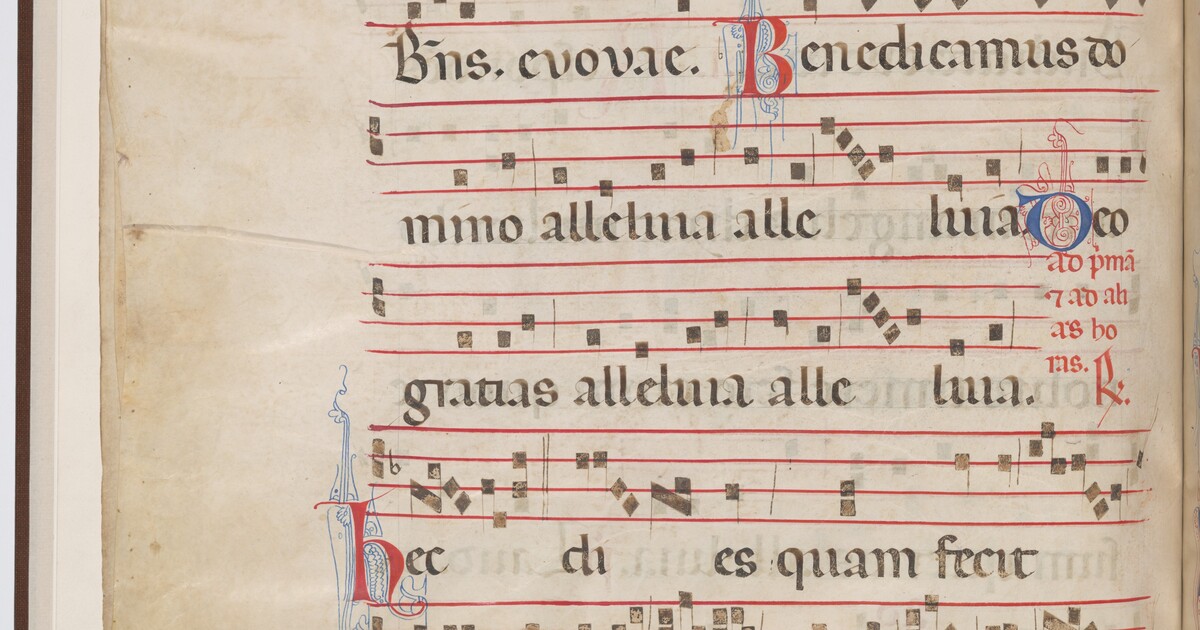 Bn̄s. evovae. Benedicamus do
mino alleluia alle luia. Deo
ad p̄mā
⁊ ad ali
as ho
ras.
gratias alleluia alle luia. R.
hec di es quam fecit